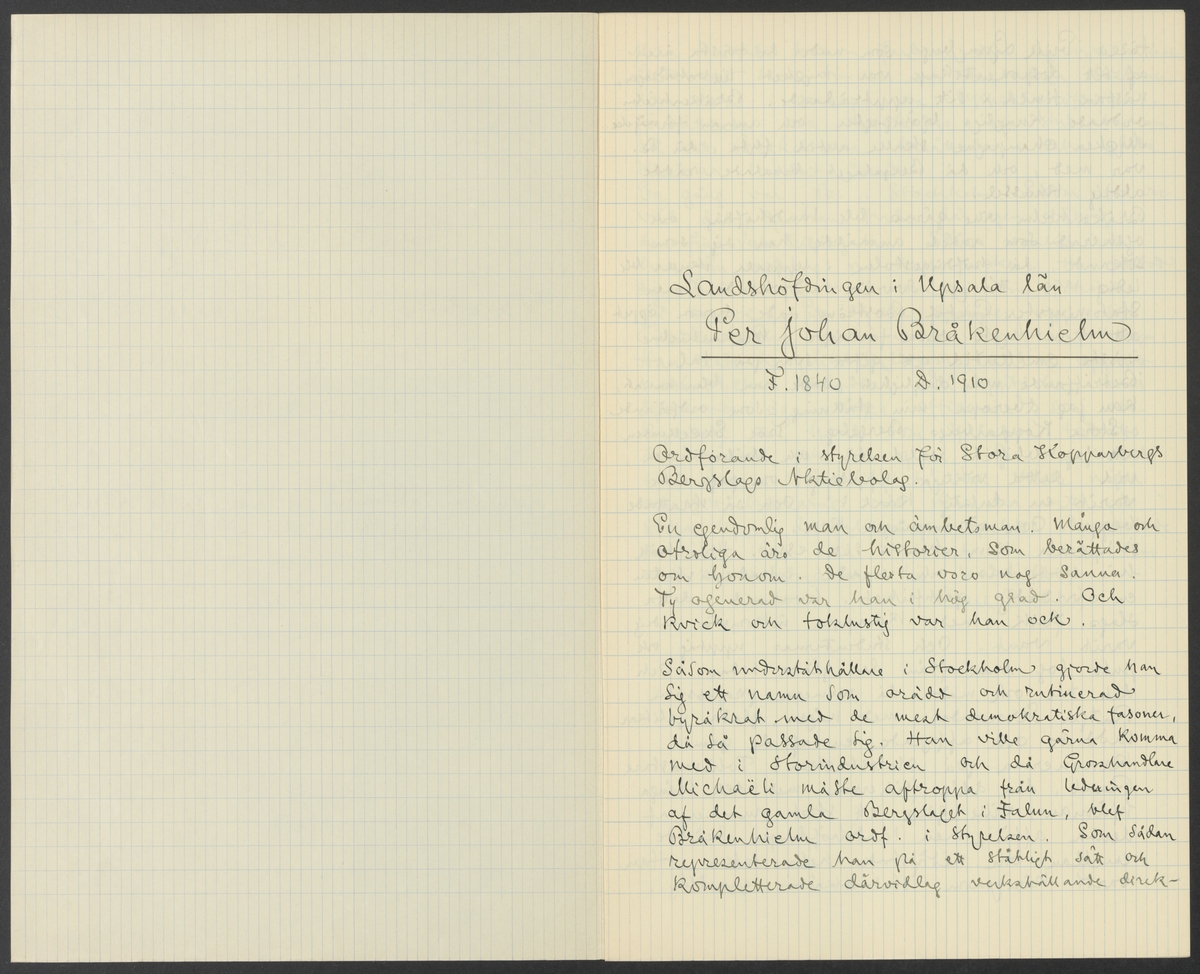 Landshöfdingen i Upsala län
Per Johan Bråkenhielm
F. 1840 D. 1910
Ordförande i styrelsen för Stora Kopparbergs
Bergslags Aktiebolag.
En egendomlig man och ämbetsman. Många och
otroliga äro de historier, som berättades
om honom. De flesta voro nog sanna.
Ty ogenerad var han i hög grad. Och
kvick och toklustig var han ock.
Såsom underståthållare i Stockholm gjorde han
sig ett namn som orädd och rutinerad
byråkrat med de mest demokratiska fasoner,
då så passade sig. Han ville gärna komma
med i Storindustrien och då Grosshandlare
Michaëli måste aftroppa från ledningen
af det gamla Bergslaget i Falun, blef
Bråkenhielm ordf. i Styrelsen. Som sådan
representerade han på ett ståtligt sätt och
kompletterade därvidlag verkställande direk-